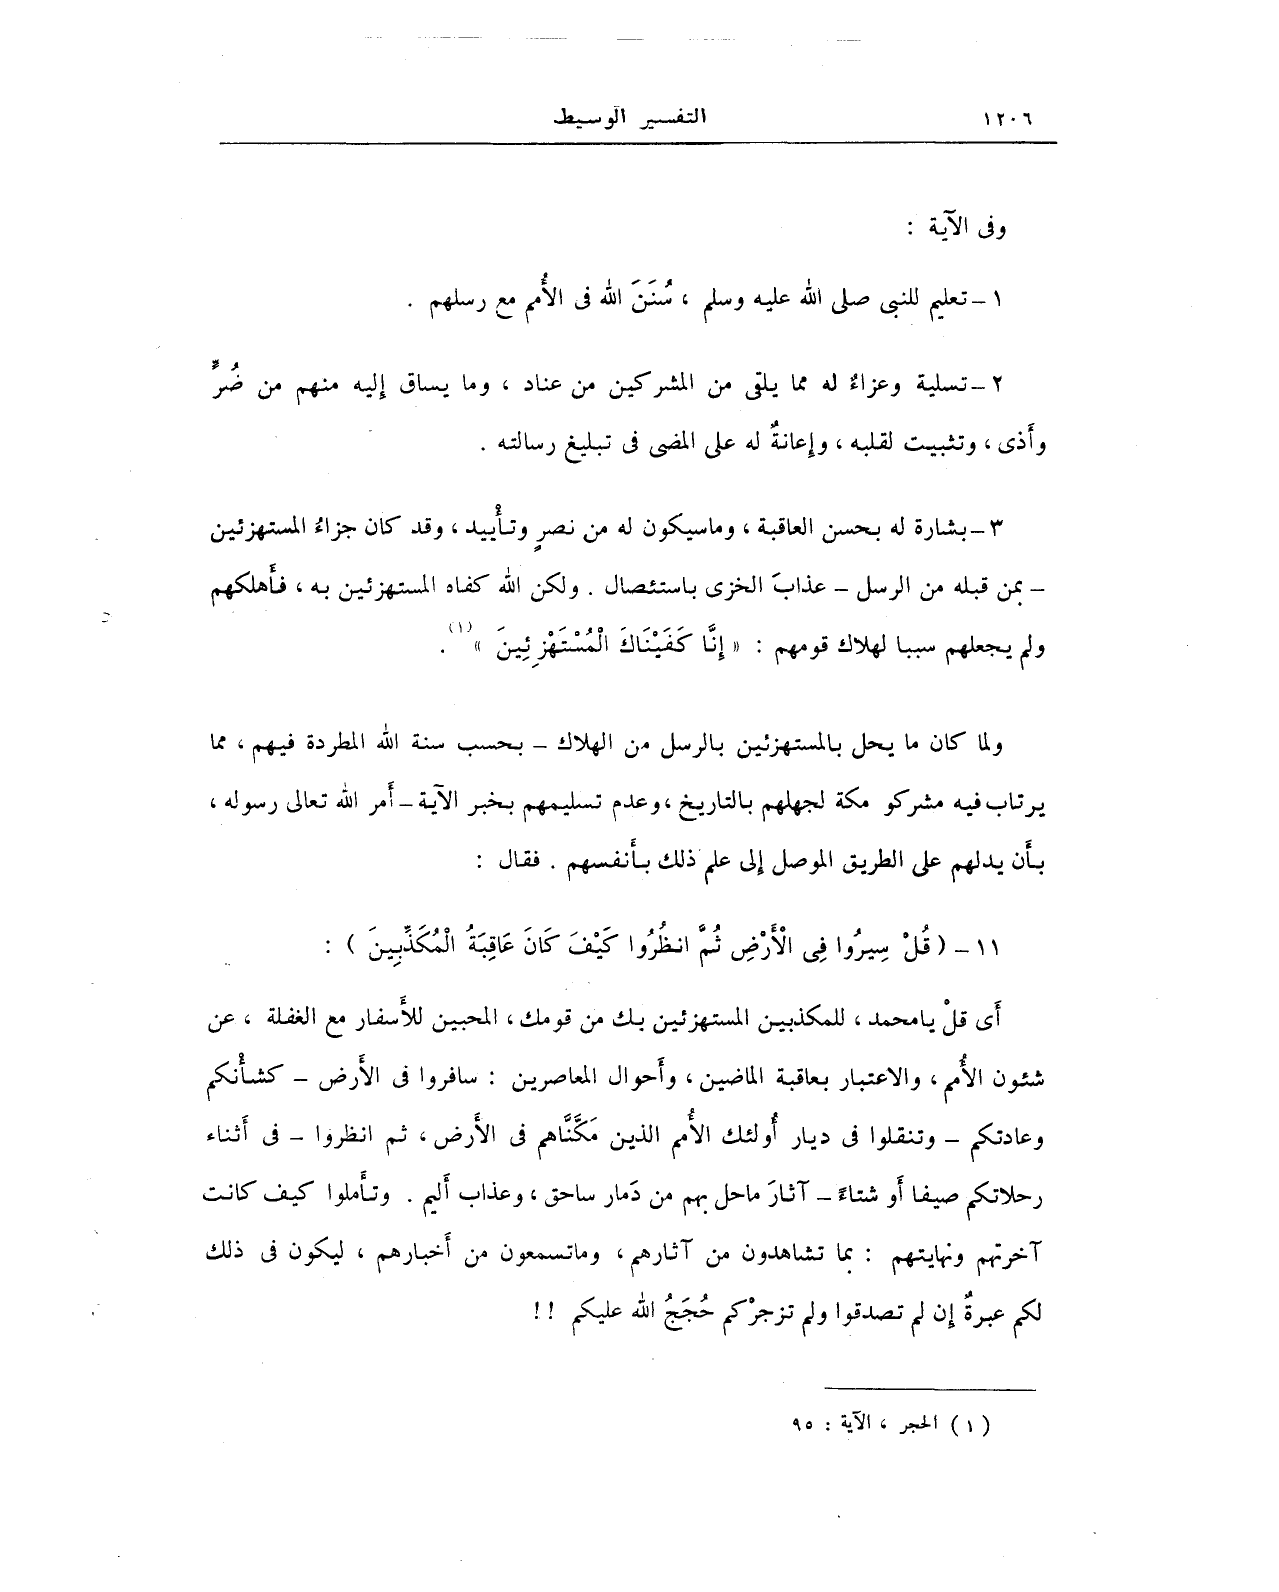 ١٢٠٦ التفسير الوسيط
وفى الآية :
١ – تعليم للنبى صلى الله عليه وسلم ، سُنَنَ الله فى الأُمم مع رسلهم .
٢ – تسلية وعزاءٌ له مما يلقى من المشركين من عناد ، وما يساق إليه منهم من ضُرٍّ
وأَذى ، وتثبيت لقلبه ، وإعانةٌ له على المضى فى تبليغ رسالته .
٣ – بشارة له بحسن العاقبة ، وماسيكون له من نصرٍ وتأْييد ، وقد كان جزاءُ المستهزئين
– بمن قبله من الرسل – عذابَ الخزى باستئصال . ولكن الله كفاه المستهزئين به ، فأَهلكهم
ولم يجعلهم سببا لهلاك قومهم : « إِنَّا كَفَيْنَاكَ الْمُسْتَهْزِئِينَ »(١) .
ولما كان ما يحل بالمستهزئين بالرسل من الهلاك – بحسب سنة الله المطردة فيهم ، مما
يرتاب فيه مشركو مكة لجهلهم بالتاريخ ، وعدم تسليمهم بخبر الآية – أَمر الله تعالى رسوله ،
بأَن يدلهم على الطريق الموصل إلى علم ذلك بأَنفسهم . فقال :
١١ – ( قُلْ سِيرُوا فِى الْأَرْضِ ثُمَّ انظُرُوا كَيْفَ كَانَ عَاقِبَةُ الْمُكَذِّبِينَ ) :
أَى قلْ يامحمد ، للمكذبين المستهزئين بك من قومك ، المحبين للأَسفار مع الغفلة ، عن
شئون الأُمم ، والاعتبار بعاقبة الماضين ، وأَحوال المعاصرين : سافروا فى الأَرض – كشأْنكم
وعادتكم – وتنقلوا فى ديار أُولئك الأُمم الذين مَكَّنَّاهم فى الأَرض ، ثم انظروا – فى أَثناء
رحلاتكم صيفا أَو شتاءً – آثارَ ماحل بهم من دَمار ساحق ، وعذاب أَليم . وتأَملوا كيف كانت
آخرتهم ونهايتهم : بما تشاهدون من آثارهم ، وماتسمعون من أَخبارهم ، ليكون فى ذلك
لكم عبرةٌ إن لم تصدقوا ولم تزجرْكم حُجَجُ الله عليكم !!
( ١ ) الحجر ، الآية : ٩٥